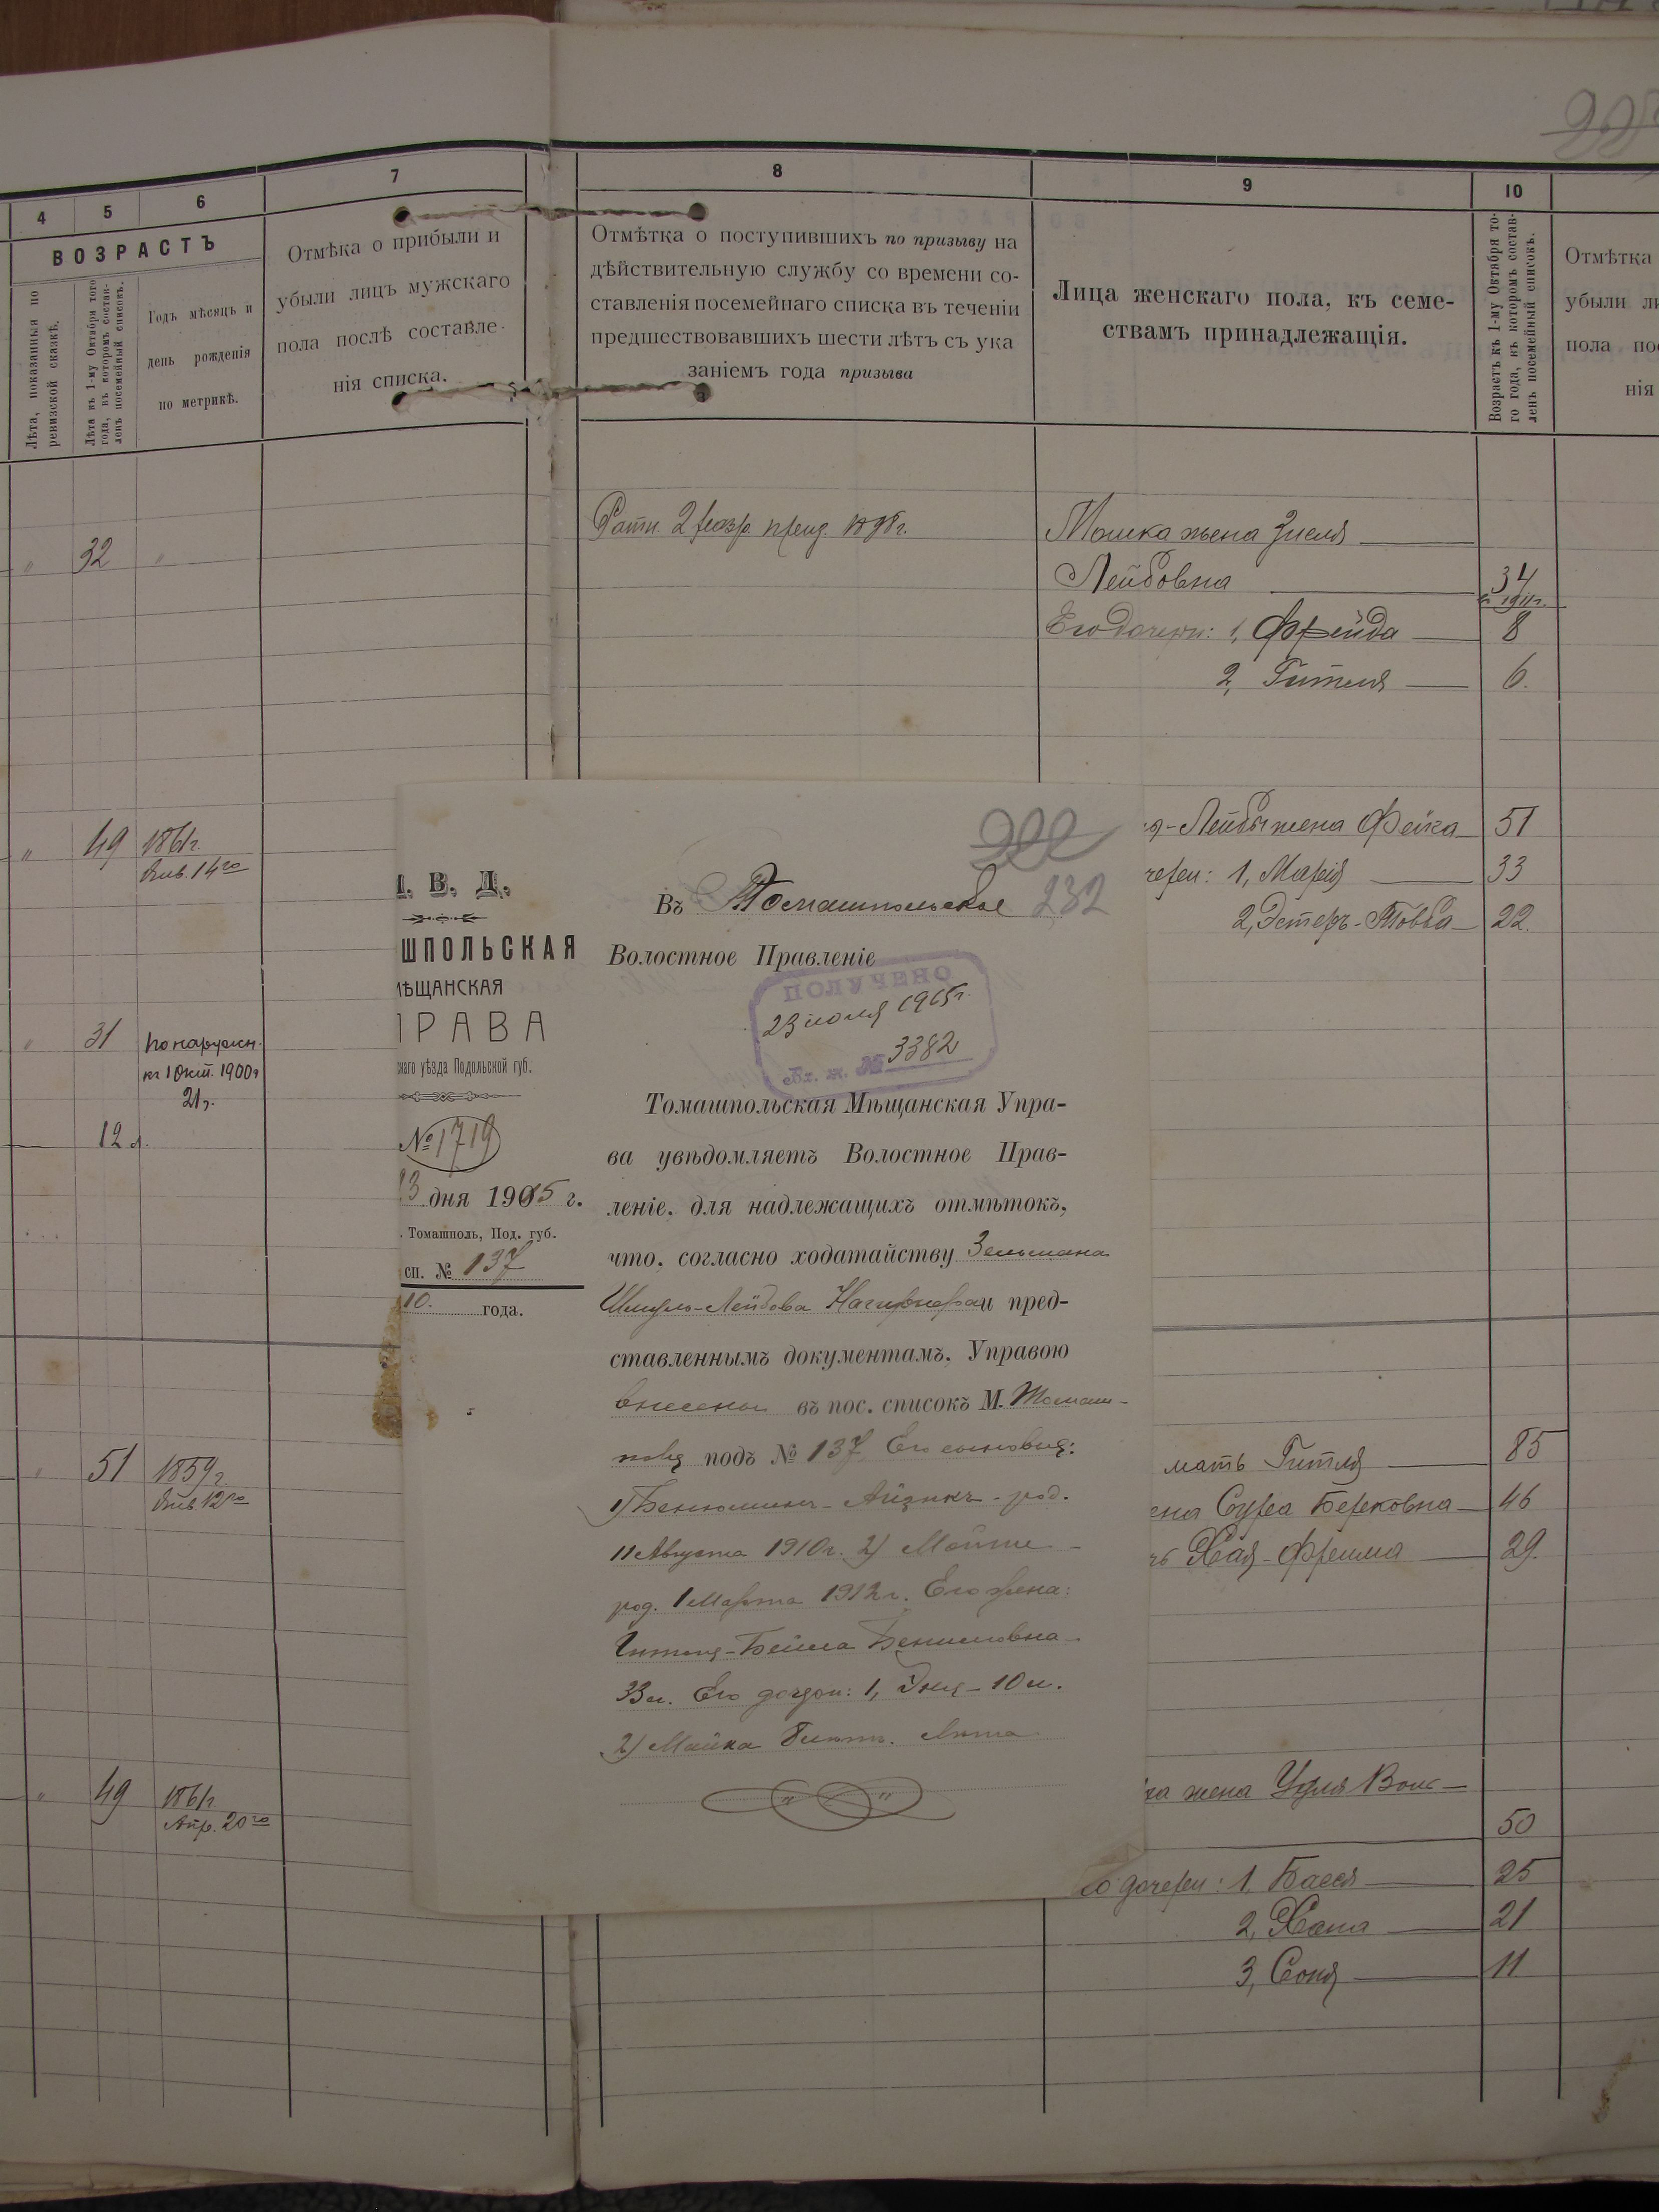 4
5
6
7
ВОЗРАСТЪ
Лѣта, показанныя по
ревизской сказкѣ.
Лѣта къ 1-му Октября того
года, въ которомъ состав-
ленъ посемейный списокъ.
Годъ мѣсяцъ и
день рожденія
по метрикѣ.
Отмѣка о прибыли и
убыли лицъ мужскаго
пола послѣ составле-
нія списка.
" 32 "
" 49 1861г.
Янв. 14го
" 31 По наружн.
къ 1 Окт. 1900г
21 г.
12 л.
" 51 1859г.
Янв 12го
" 49 1861г.
Апр. 20го
8
9
10
Отмѣтка о поступившихъ по призыву на
дѣйствительную службу со времени со-
ставленія посемейнаго списка въ теченіи
предшествовавшихъ шести лѣтъ съ ука
заніемъ года призыва
Лица женскаго пола, къ семе-
ствамъ принадлежащія.
Возрастъ къ 1-му Октября то-
го года, въ которомъ состав-
ленъ посемейный списокъ.
Отмѣтка
убыли ли
пола пос
нія
Ратн. 2 разр. призд. 1898г.
Мошка жена Зисля
Лейбовна 34
къ 1911г.
Его дочери: 1, Фрейда 8
2, Гитля 6.
я-Лейбы жена Фейга 51
черы: 1, Марія 33
2, Эстеръ-Товба 22.
мать Гитля 85
ена Сура Берковна 46
чь Хая-Фрейма 29.
ка жена Удля Волк-
50
го дочеры: 1. Бася 25
2, Хана 21
3, Соня 11.
. В. Д.
ШПОЛЬСКАЯ
ѢЩАНСКАЯ
ПРАВА
скаго уѣзда Подольской губ.
№ 1719
13 дня 1915 г.
. Томашполь, Под. губ.
сп. № 137
10. года.
222
232
Въ Томашпольское
Волостное Правленіе
ПОЛУЧЕНО
23 июля 1915г.
Вх. ж. № 3382
Томашпольская Мѣщанская Упра-
ва увѣдомляетъ Волостное Прав-
леніе, для надлежащихъ отмѣтокъ,
что, согласно ходатайству Зельмана
Шмуль-Лейбова и пред-
ставленнымъ документамъ, Управою
внесены въ пос. списокъ М. Томаш-
поля подъ № 137 Его сыновья:
1) Бенюминъ-Айзикъ - род.
11 Августа 1910г. 2) Мойше -
род. 1 Марта 1912г. Его жена:
Гитля-Бейла
33 л. Его дочери: 1, Эня - 10 л.
2) Майка 8